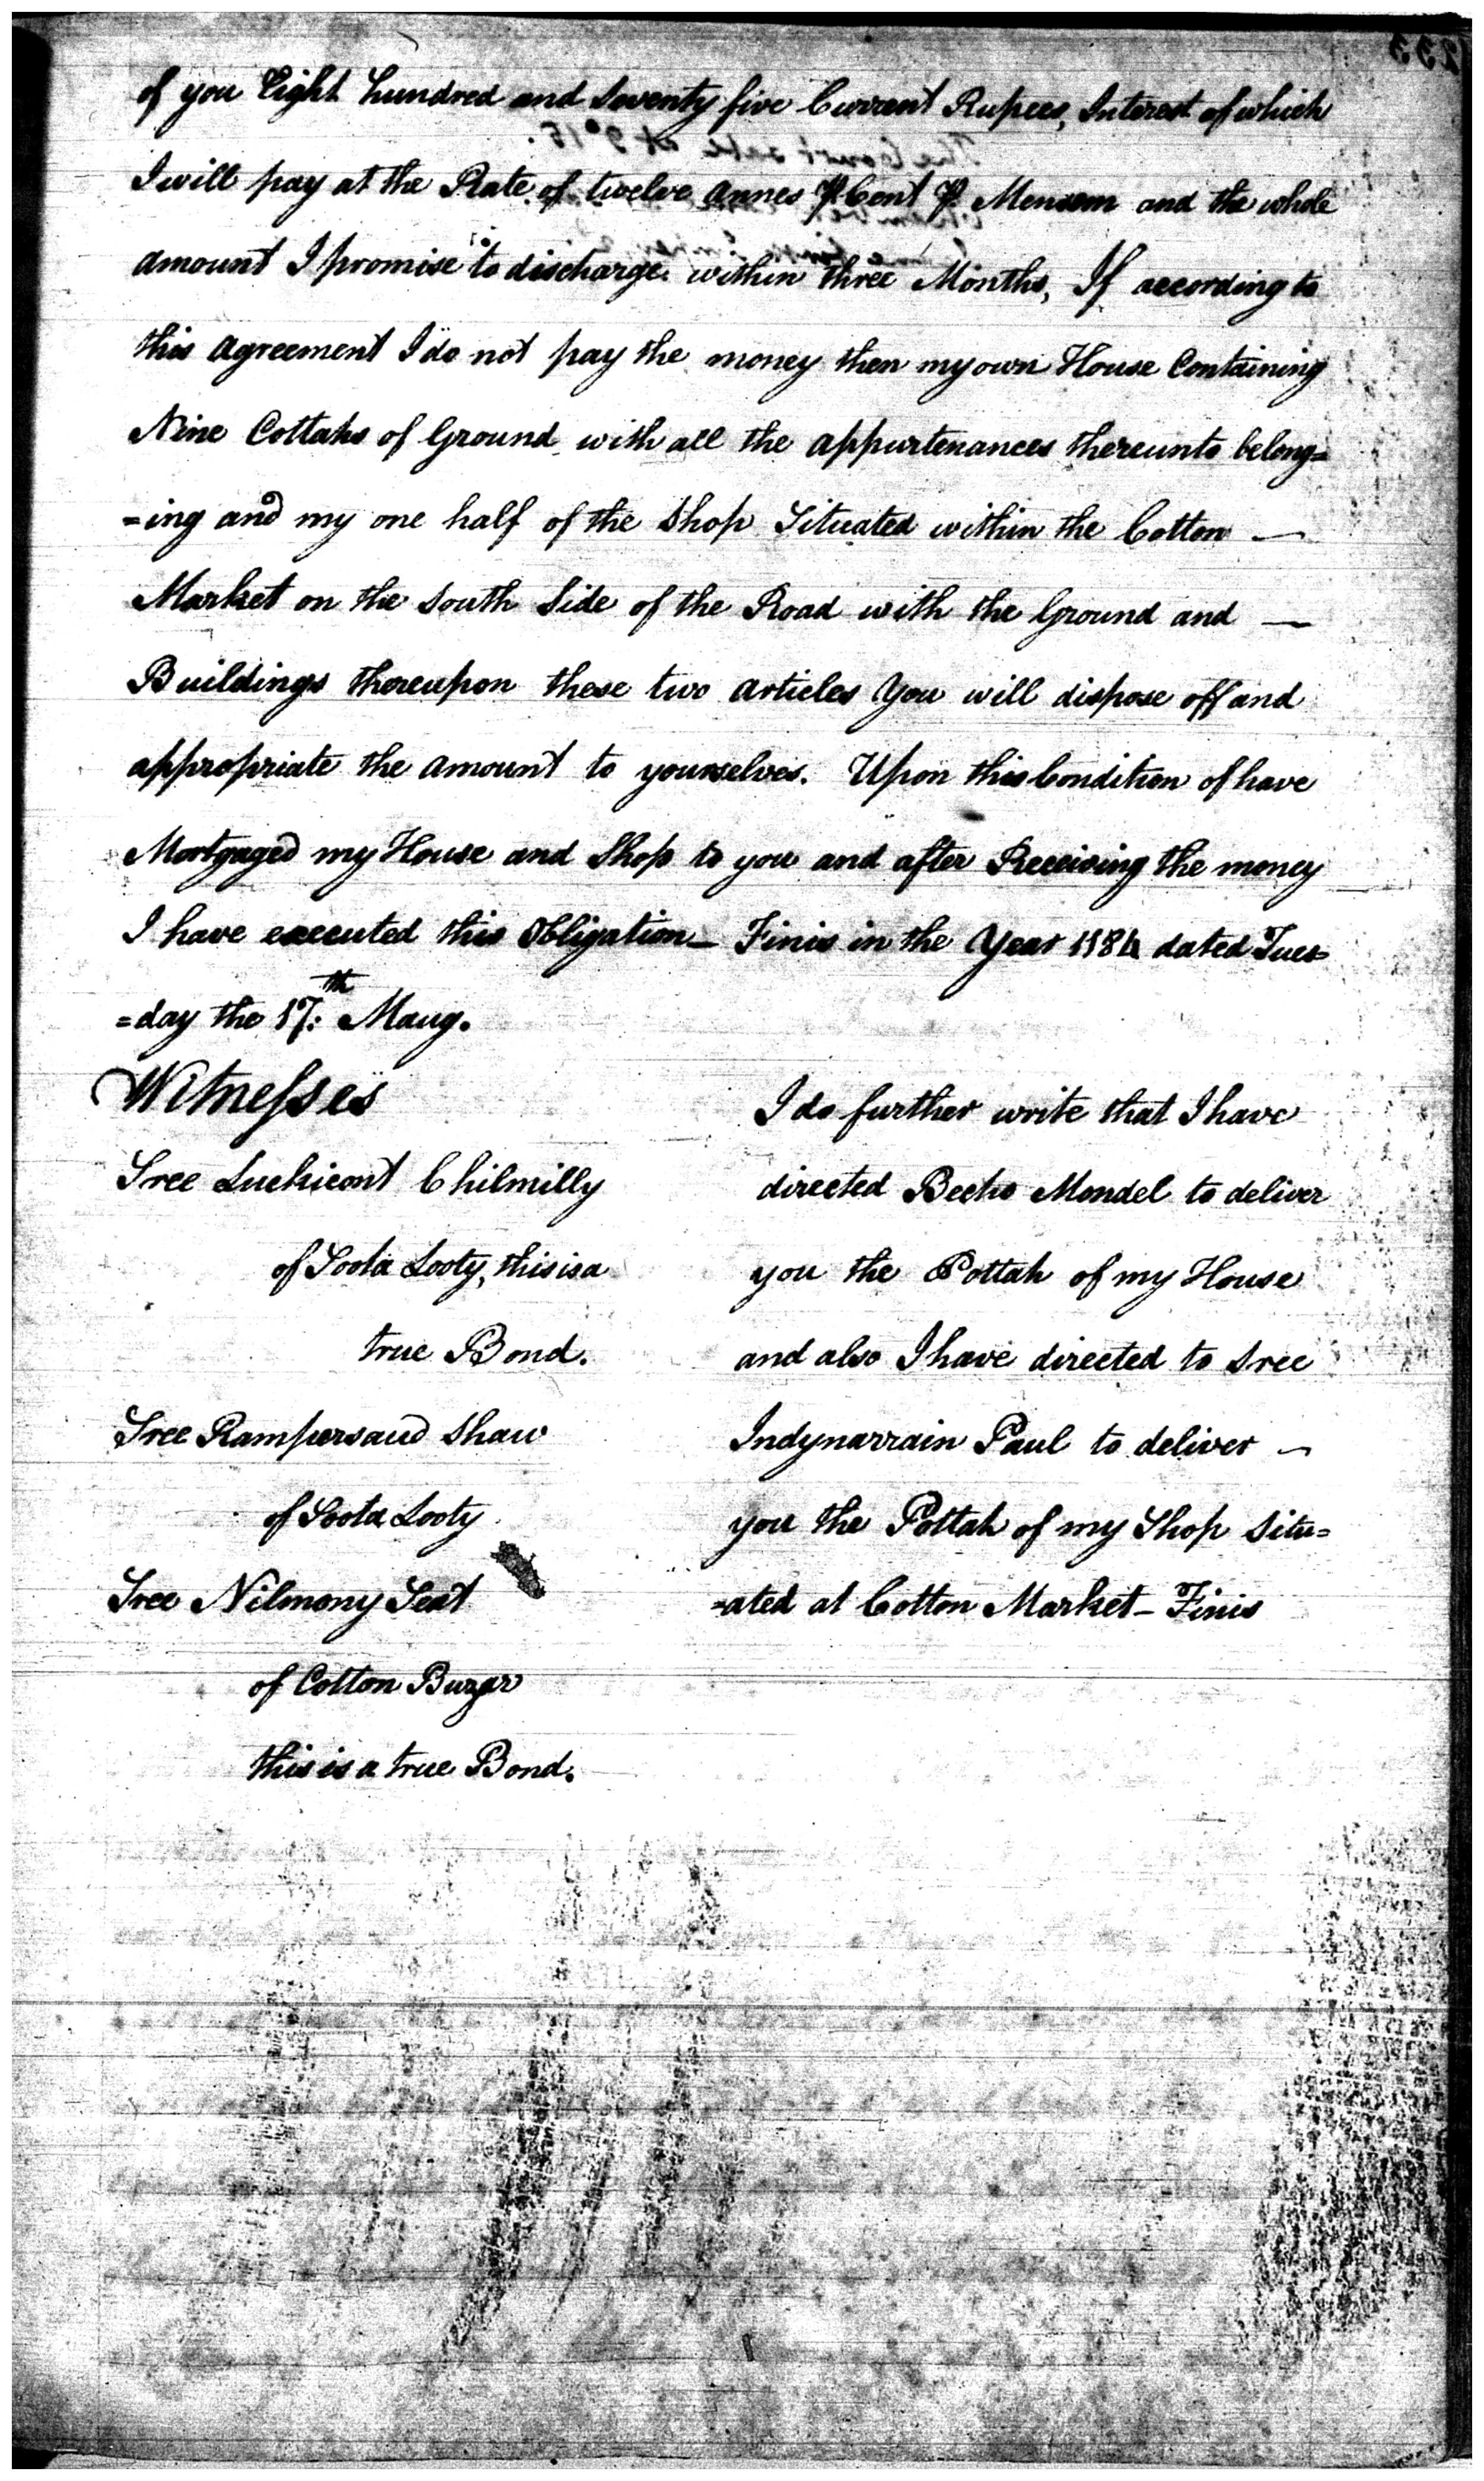 of you Eight hundred and Seventy five Currant Rupees, Interest of which
I will pay at the Rate of twelve annes ⅌ Cent ⅌ Mensem and the whole
amount I promise to discharge within three Months, If according to
this Agreement I do not pay the money then my own House Containing
Nine Cottahs of Ground with all the appurtenances thereunto belong=
=ing and my one half of the Shop Situated within the Cotton —
Market on the South Side of the Road with the Ground and —
Buildings thereupon these two articles You will dispose off and
appropriate the amount to yourselves. Upon this Condition of have
Mortgaged my House and Shop to you and after Receiving the money
I have executed this Obligation — Finis in the Year 1184 dated Tues=
=day the 17th: Maug.
Witnesses
Sree Luckicont Chilmilly
of Soota Looty, this is a
true Bond.
Sree Rampersaud Shaw
of Soota Looty
Sree Nilmony Seat
of Cotton Buzar
this is a true Bond.
I do further write that I have
directed Becho Mondel to deliver
you the Pottah of my House
and also I have directed to Sree
Indynarrain Paul to deliver —
you the Pottah of my Shop Situ=
=ated at Cotton Market — Finis